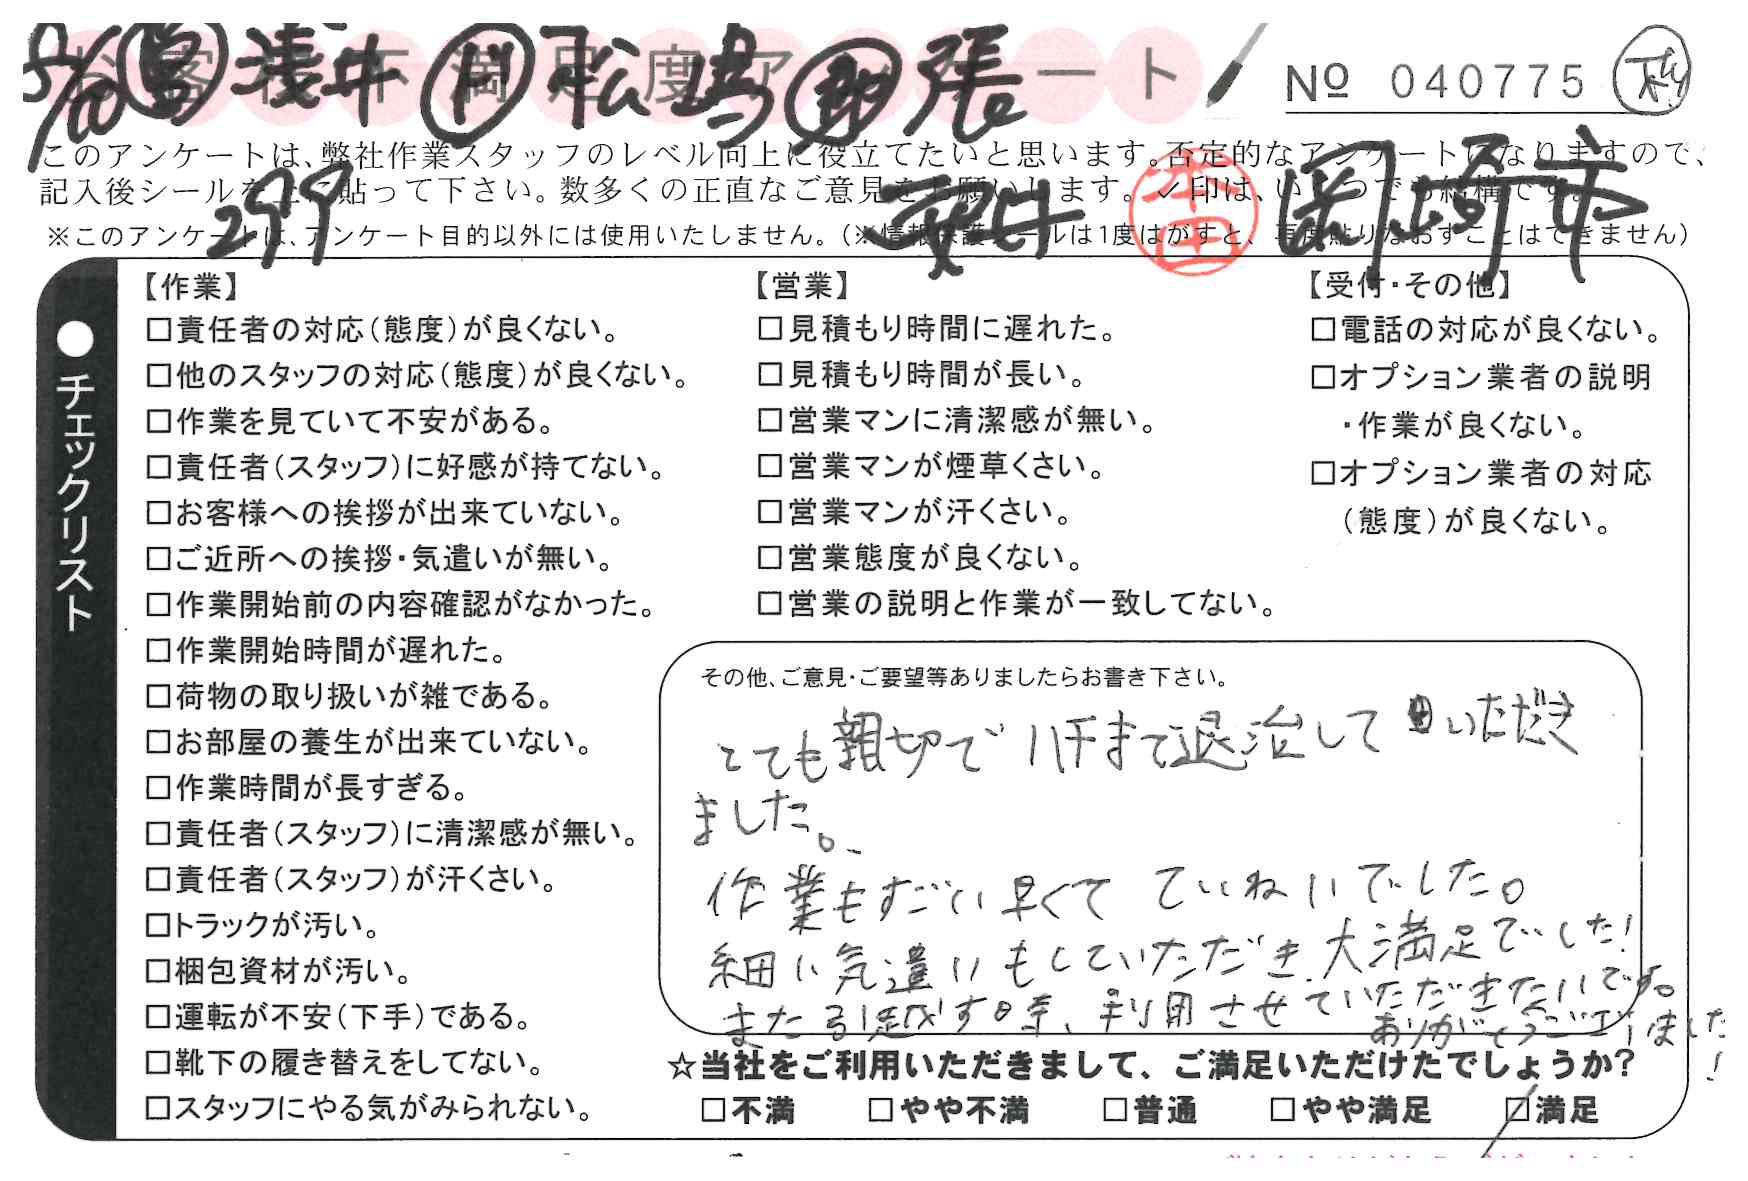 お客様不満足度アンケート
5/10 島 浅井 ド 松嶋 張
№ 040775
このアンケートは、弊社作業スタッフのレベル向上に役立てたいと思います。否定的なアンケートになりますので、
記入後シールを上に貼って下さい。数多くの正直なご意見をお願いします。✓印は、いくつでも結構です。
299 本田 岡崎市
※このアンケートは、アンケート目的以外には使用いたしません。（※情報保護シールは1度はがすと、再度貼りなおすことはできません）
●チェックリスト
【作業】
□責任者の対応（態度）が良くない。
□他のスタッフの対応（態度）が良くない。
□作業を見ていて不安がある。
□責任者（スタッフ）に好感が持てない。
□お客様への挨拶が出来ていない。
□ご近所への挨拶・気遣いが無い。
□作業開始前の内容確認がなかった。
□作業開始時間が遅れた。
□荷物の取り扱いが雑である。
□お部屋の養生が出来ていない。
□作業時間が長すぎる。
□責任者（スタッフ）に清潔感が無い。
□責任者（スタッフ）が汗くさい。
□トラックが汚い。
□梱包資材が汚い。
□運転が不安（下手）である。
□靴下の履き替えをしてない。
□スタッフにやる気がみられない。
【営業】
□見積もり時間に遅れた。
□見積もり時間が長い。
□営業マンに清潔感が無い。
□営業マンが煙草くさい。
□営業マンが汗くさい。
□営業態度が良くない。
□営業の説明と作業が一致してない。
【受付・その他】
□電話の対応が良くない。
□オプション業者の説明
・作業が良くない。
□オプション業者の対応
（態度）が良くない。
その他、ご意見・ご要望等ありましたらお書き下さい。
とても親切でハチまで退治していただき
ました。
作業もすごい早くて ていねいでした。
細い気遣いもしていただき、大満足でした!
また引越す時、利用させていただきたいです。
ありがとうございました!
☆当社をご利用いただきまして、ご満足いただけたでしょうか?
□不満 □やや不満 □普通 □やや満足 ☑満足